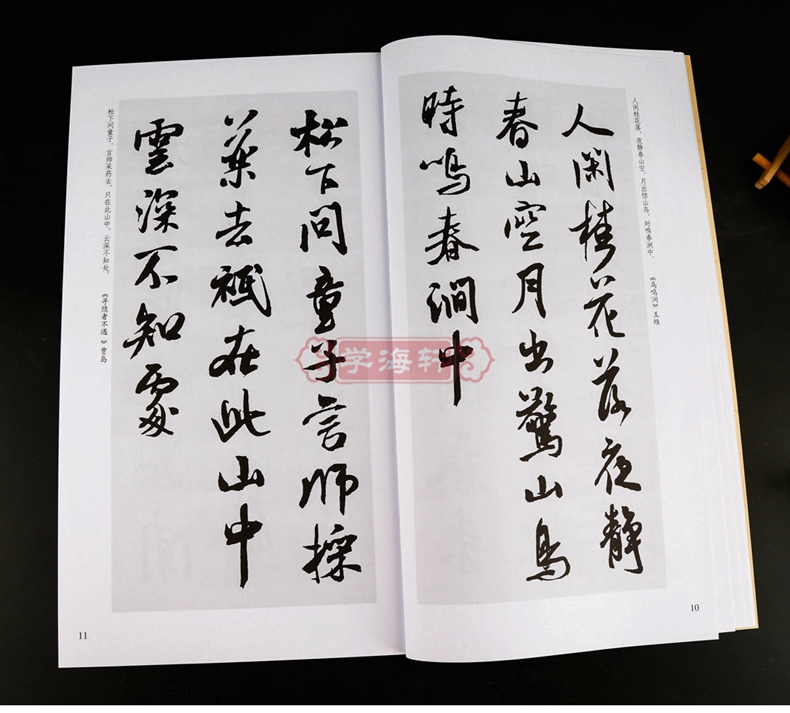 人闲桂花落，夜静春山空。月出惊山鸟，时鸣春涧中。
《鸟鸣涧》王维
人閑桂花落夜靜
春山空月出驚山鳥
時鳴春澗中
10
松下問童子言師採
藥去祗在此山中
雲深不知處
松下问童子，言师采药去。只在此山中，云深不知处。
《寻隐者不遇》贾岛
11
学海轩